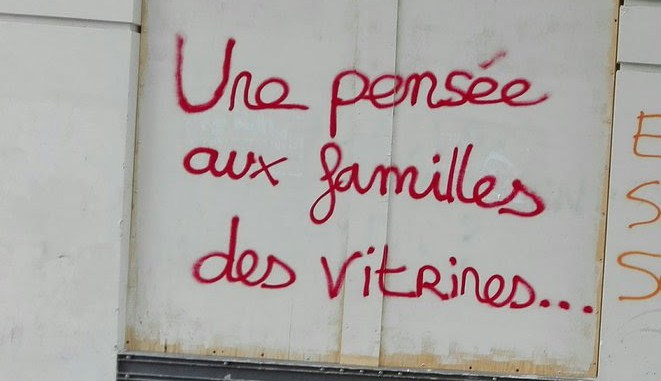 Une pensée
aux familles
des vitrines...
E
S
S